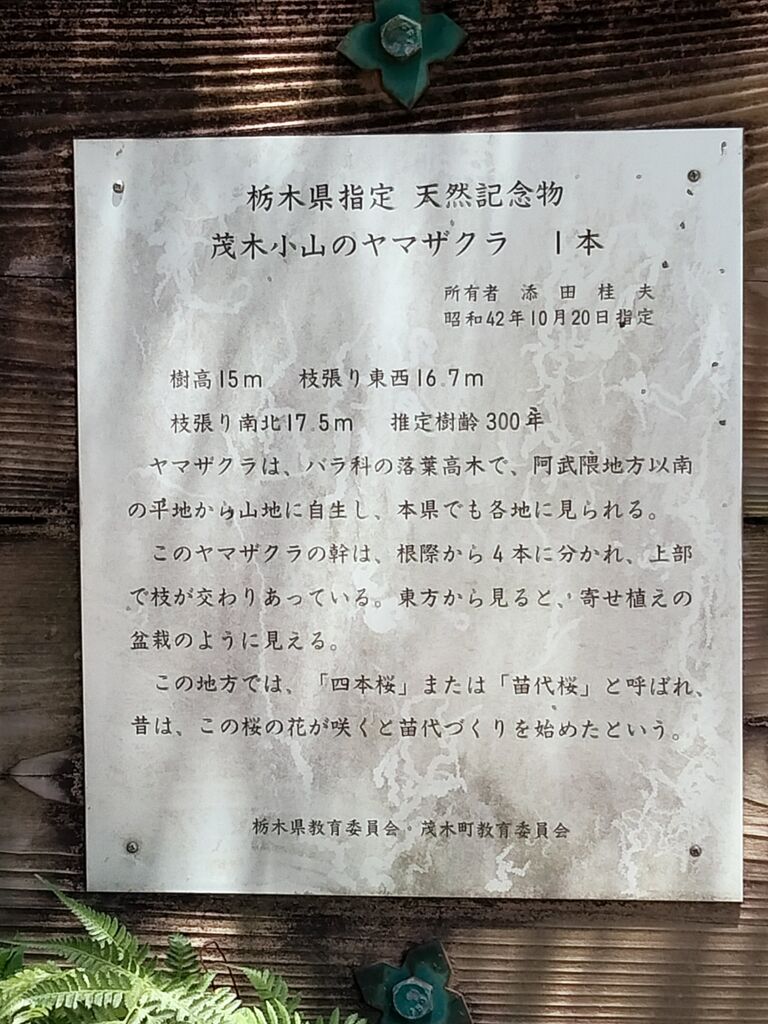 栃木県指定 天然記念物
茂木小山のヤマザクラ 1本
所有者 添田桂夫
昭和42年10月20日指定
樹高15m 枝張り東西16.7m
枝張り南北17.5m 推定樹齢300年
ヤマザクラは、バラ科の落葉高木で、阿武隈地方以南
の平地から山地に自生し、本県でも各地に見られる。
このヤマザクラの幹は、根際から4本に分かれ、上部
で枝が交わりあっている。東方から見ると、寄せ植えの
盆栽のように見える。
この地方では、「四本桜」または「苗代桜」と呼ばれ、
昔は、この桜の花が咲くと苗代づくりを始めたという。
栃木県教育委員会・茂木町教育委員会